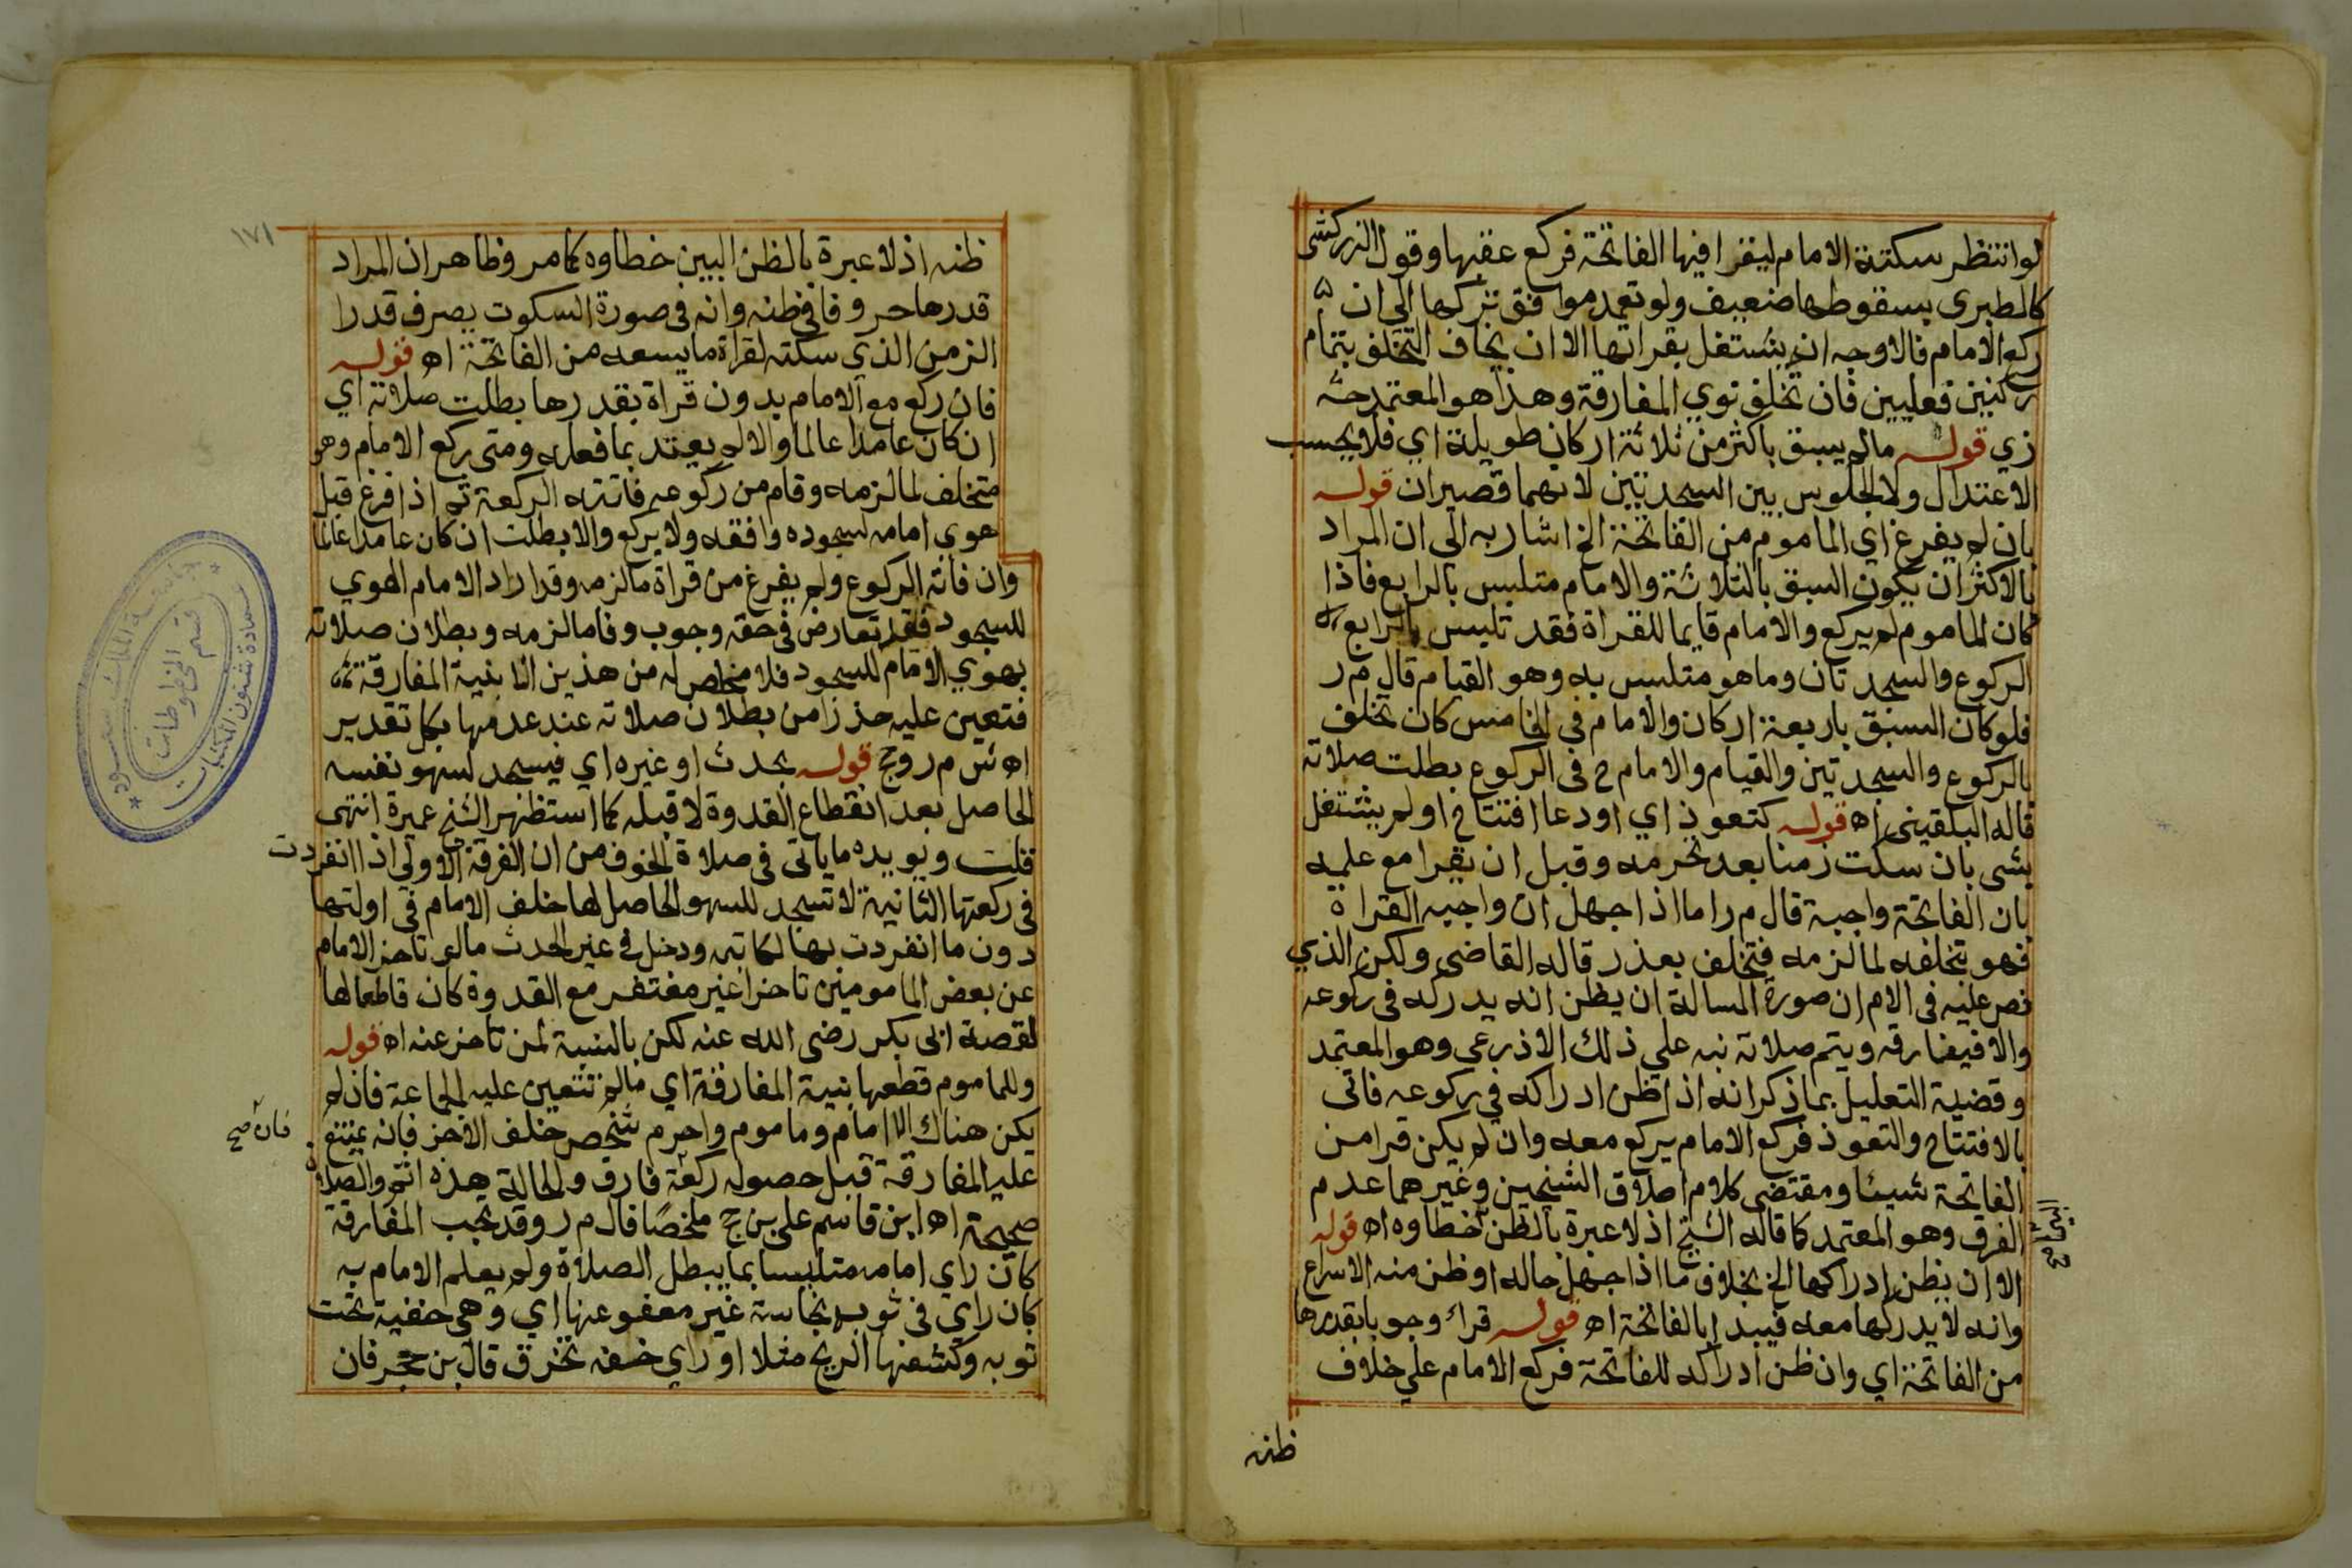 لو انتظر سكتة الامام ليقرا فيها الفاتحة فركع عقبها وقول الزركشي
كالطبري بسقوطها ضعيف ولو تعمد موافق تركها الى ان
ركع الامام فالاوجه انه يشتغل بقراتها الا ان يخاف التخلف بتمام
ركنين فعليين فان تخلف نوي المفارقة وهذا هو المعتمد حـ
زي قوله مالم يسبق باكثر من ثلاثة اركان طويلة اي فلا يحسب
الاعتدال ولا الجلوس بين السجدتين لانهما قصيران قوله
بان لم يفرغ اي الماموم من الفاتحة الخ اشار به الى ان المراد
بالاكثر ان يكون السبق بالثلاثة والامام متلبس بالرابع فاذا
كان الماموم لم يركع والامام قايما للقراة فقد تلبس بالرابع
الركوع والسجدتان وما هو متلبس به وهو القيام قال م ر
فلو كان السبق باربعة اركان والامام في الخامس كان تخلف
بالركوع والسجدتين والقيام والامام ح في الركوع بطلت صلاته
قاله البلقيني اه قوله كتعوذ اي اودعا افتتاح اولم يشتغل
بشي بان سكت زمنا بعد تحرمه وقبل ان يقرا مع علمه
بان الفاتحة واجبة قال م ر اما اذا جهل ان واجبه القراة
فهو بتخلفه لما لزمه فتخلف بعذر قاله القاضي ولكن الذي
نص عليه في الام ان صورة المسالة ان يظن انه يدركه في ركوعه
والا فيفارقه ويتم صلاته نبه علي ذلك الاذرعي وهو المعتمد
وقضية التعليل بما ذكر انه اذا ظن ادراكه في ركوعه فاتى
بالافتتاح والتعوذ فركع الامام يركع معه وان لم يكن قرا من
الفاتحة شيئا ومقتضى كلام اطلاق الشيخين وغيرهما عدم
الفرق وهو المعتمد كما قاله الشيخ اذ لا عبرة بالظن خطاوه اه قوله
البين
صح
الا ان يظن ادراكها الخ بخلاف ما اذا جهل حاله او ظن منه الاسراع
وانه لا يدركها معه فيبدا بالفاتحة اه قوله قراء وجوبا بقدرها
من الفاتحة اي وان ظن ادراكه للفاتحة فركع الامام علي خلاف
ظنه
١٧١
ظنه اذ لا عبرة بالظن البين خطاوه كما مر وظاهر ان المراد
قدرها حروفا في ظنه وانه في صورة السكوت يصرف قدرا
الزمن الذي سكته لقراة ما يسعه من الفاتحة اه قوله
فان ركع مع الامام بدون قراة بقدرها بطلت صلاته اي
ان كان عامدا عالما والا لم يعتد بما فعله ومتى ركع الامام وهو
متخلف لما لزمه وقام من ركوعه فاتته الركعة ثم اذا فرغ قبل
هوي امامه لسجوده وافقه ولا يركع والا بطلت ان كان عامدا عالما
وان فاته الركوع ولم يفرغ من قراة ما لزمه وقد اراد الامام الهوي
للسجود فقد تعارض في حقه وجوب وفا ما لزمه وبطلان صلاته
بهوي الامام للسجود فلا مخلص له من هذين الا بنية المفارقة
فتعين عليه حذرا من بطلان صلاته عند عدمها بكل تقدير
اه ش م ر وحج قوله بحدث او غيره اي فيسجد لسهو نفسه
الحاصل بعد انقطاع القدوة لا قبله كما استظهر الشيخ عميرة انتهى
قلت ويويده ما ياتي في صلاة الخوف من ان الفرقة الاولى اذا انفردت
في ركعتها الثانية لا تسجد للسهو الحاصل لها خلف الامام في اولتها
دون ما انفردت بها لكاتبه ودخل في غير الحدث مالو تاخر الامام
عن بعض المامومين تاخرا غير مغتفر مع القدوة كان قاطعا لها
لقصة ابي بكر رضي الله عنه لكن بالنسبة لمن تاخر عنه اه قوله
وللماموم قطعها بنية المفارقة اي مالم تتعين عليه الجماعة فان لم
يكن هناك الا امام وماموم واحرم شخص خلف الاخر فانه يمتنع
فان صح
عليه المفارقة قبل حصوله ركعة فارق والحالة هذه اثم والصلاة
صحيحة اه ابن قاسم على بن حج ملخصا قال م ر وقد تجب المفارقة
كان راي امامه متلبسا بما يبطل الصلاة ولم يعلم الامام به
كان راي في ثوبه نجاسة غير معفو عنها اي وهي خفية تحت
ثوبه وكشفها الريح مثلا او راي خفه تخرق قال بن حجر فان
جامعة الملك سعود
عمادة شئون المكتبات
قسم المخطوطات